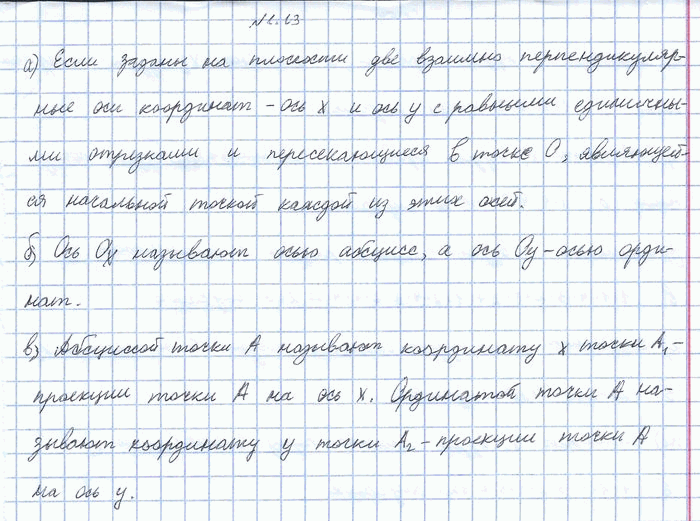 №1.13
а) Если заданы на плоскости две взаимно перпендикуляр-
ные оси координат - ось x и ось y с равными единичны-
ми отрезками и пересекающиеся в точке O, являющей-
ся начальной точкой каждой из этих осей.
б) Ось Ox называют осью абсцисс, а ось Oy - осью орди-
нат.
в) Абсциссой точки A называют координату x точки A₁ -
проекции точки A на ось x. Ординатой точки A на-
зывают координату y точки A₂ - проекции точки A
на ось y.